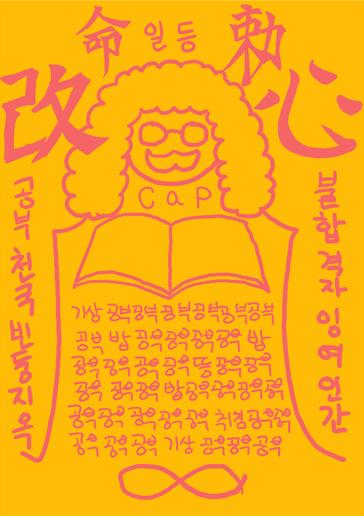 命 일등 勅
改 心
CaP
공부 천국 빈둥지옥
불합격자 잉여인간
기상 공부공부 공부공부공부공부
공부 밥 공부공부공부공부 밥
공부공부 공부공부 똥 공부공부
공부 공부공부밥공부공부공부공부
공부공부 공부공부공부 취침공부공부
공부 공부공부 기상 공부공부공부